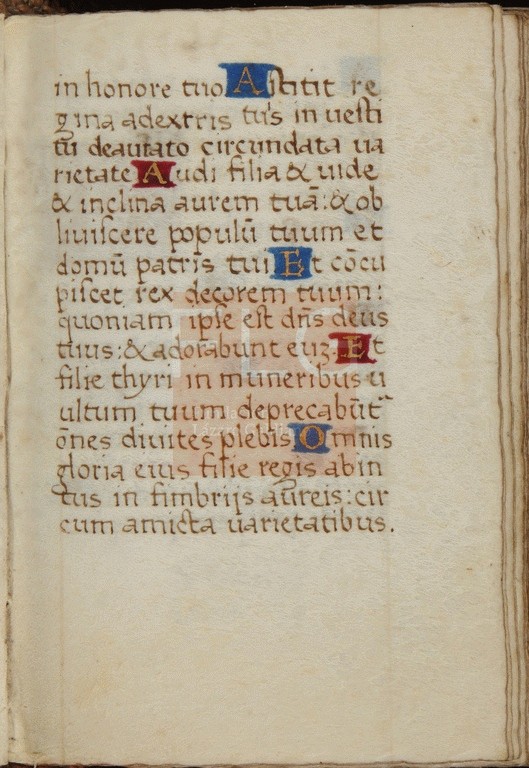 in honore tuo Astitit re
gina adextris tu's in uesti
tū deaurato circundata ua
rietate Audi filia & uide
& inclina aurem tuā: & ob
liuiscere populū tuum et
domū patris tui Et cōcu
piscet rex decorem tuum:
quoniam ipse est dn̄s deus
tuus: & adorabunt euȝ. Et
filie thyri in muneribus u
ultum tuum deprecabūt
ōnes diuites plebis Omnis
gloria eius filie regis abin
tus in fimbrijs aureis: cir
cum amicta uarietatibus.
FLG